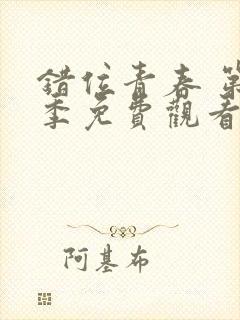 錯位青春 第
季免費觀看
阿基布